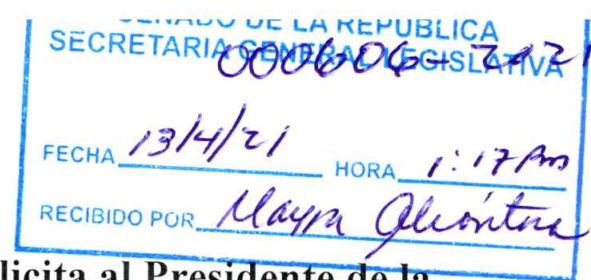 SENADO DE LA REPUBLICA
SECRETARIA GENERAL LEGISLATIVA
000606-2021
FECHA 13/4/21 HORA 1:17 Pm
RECIBIDO POR Mayra
licita al Presidente de la